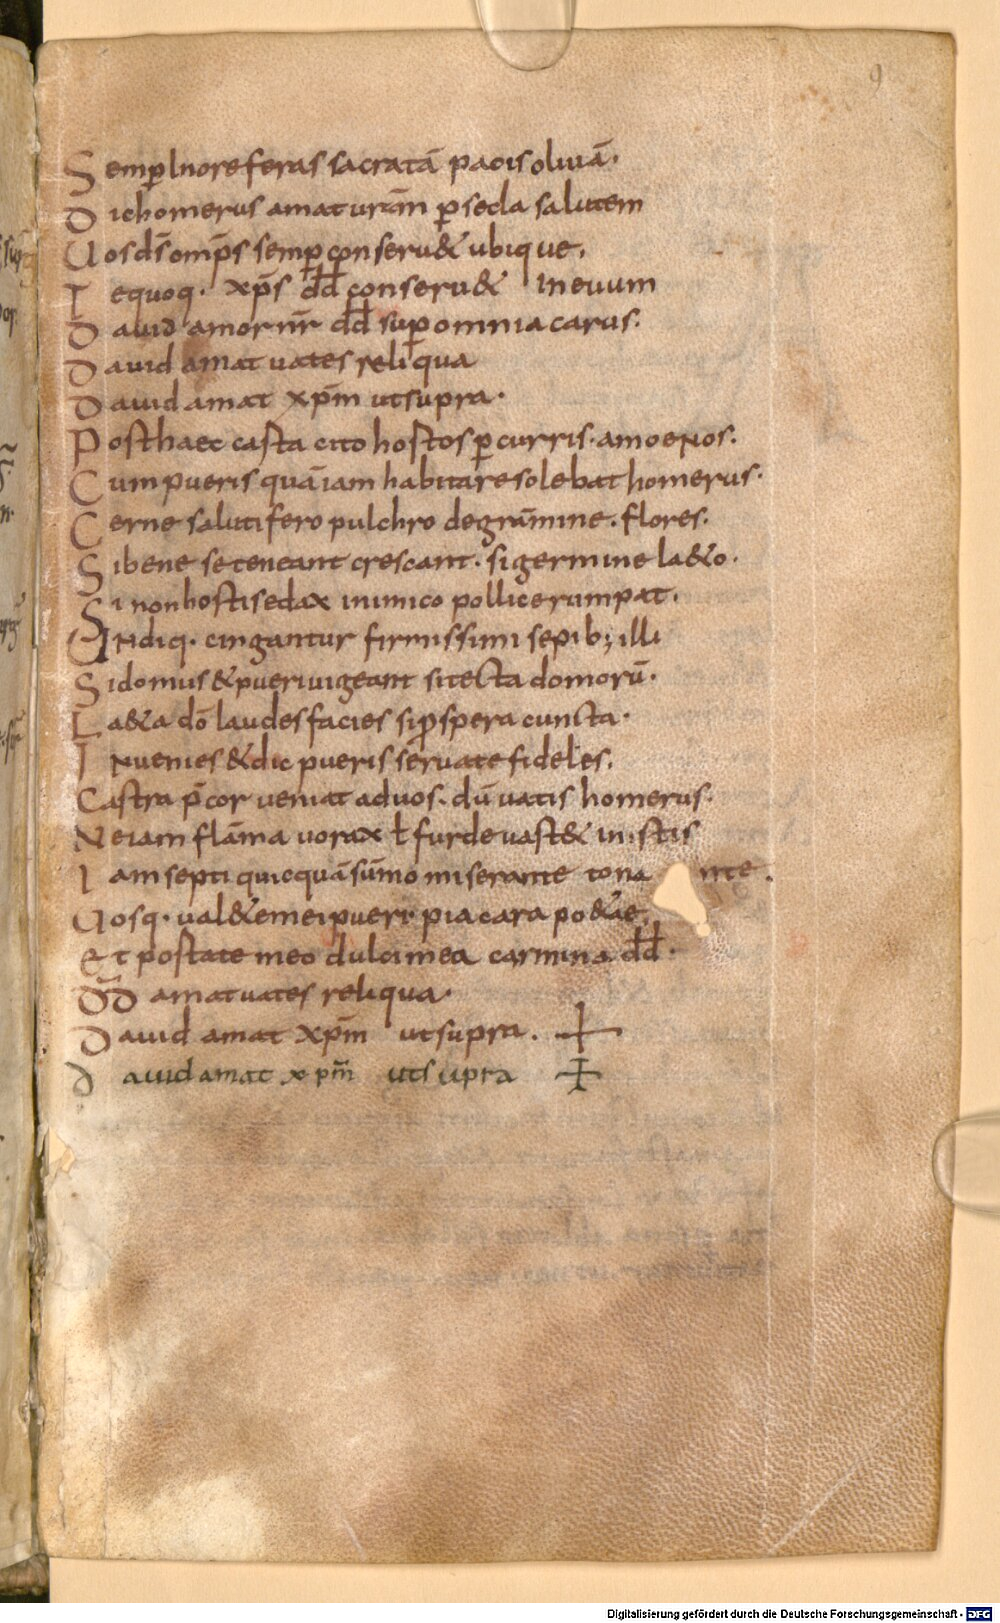 9
Semp̲ In ore feras sacratā pacis oliuā.
Dic homerus amat uram̄ p̲ secla salutem
Uos ds̄ omp̄s semp̲ conseru& ubique.
Tequoq. xp̄s dd̄ conseru& In euum
Dauid amor nr̄ dd̄ sup̲ omnia carus.
Dauid amat uates reliqua
Dauid amat xp̄m ut supra.
Post haec casta cito hostos p̲curris. amoenos.
Cum pueris quā iam habitare solebat homerus.
Cerne salutifero pulchro de grāmine. flores.
Si bene se teneant crescant. si germine la&o.
Si non hostis edax inimico pollice rumpat.
Undiq. cingantur firmissimi sepib; illi
Si domus & pueri uigeant si tecta domorū.
La&a dō laudes facies si p̱spera cuncta.
Inuenies & dic pueris seruate fideles.
Castra p̄cor ueniat ad uos. dū uatis homerus.
Ne iam flāma uorax ł fur deuast& in istis
Iam septi quicquā sūmo miserante tona nte.
Uosq. ual& e mei pueri pia cara po&ae.
Et postate meo dulci mea carmina dd̄.
DD̄ amat uates reliqua.
Dauid amat xp̄m ut supra. +
Dauid amat xpm̄ ut supra +
Digitalisierung gefördert durch die Deutsche Forschungsgemeinschaft - DFG